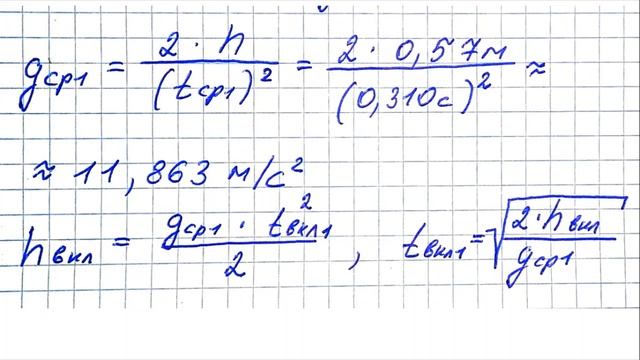 gср1 = 2 · h / (tср1)² = 2 · 0,57м / (0,310с)² ≈
≈ 11,863 м/с²
hвкл = gср1 · tвкл1² / 2 , tвкл1 = √(2·hвкл / gср1)